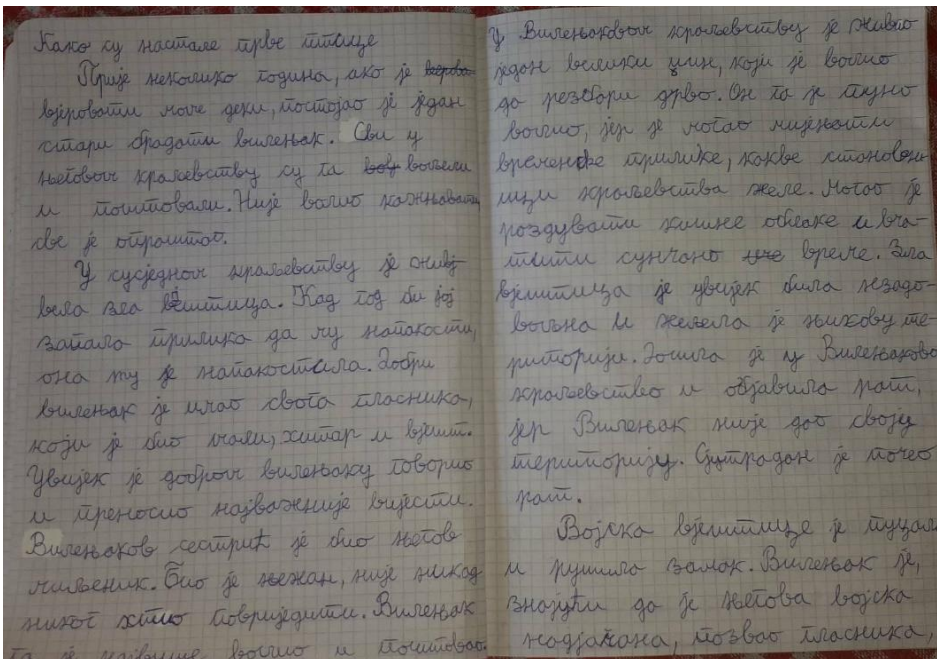 Како су настале прве птице
Прије неколико година, ако је
вјеровати моме деки, постојао је један
стари брадати вилењак. Сви у
његовом краљевству су га вољели
и поштовали. Није волио кажњавати,
све је опраштао.
У сусједном краљевству је живј
вела зла вјештица. Кад год би јој
запала прилика да му напакости,
она му је напакостила. Добри
вилењак је имао свога гласника,
који је био мали, хитар и вјешт.
Увијек је добром вилењаку говорио
и преносио најважније вијести.
Вилењаков сестрић је био његов
миљеник. Био је њежан, није никад
никог хтио повриједити. Вилењак
га је највише волио и поштовао.
У Вилењаковом краљевству је живио
један велики џин, који је волио
да резбари дрво. Он га је пуно
волио, јер је могао мијењати
временске прилике, какве становни-
ци краљевства желе. Могао је
раздувати кишне облаке и вра-
тити сунчано време. Зла
вјештица је увијек била незадо-
вољна и жељела је њихову те-
риторију. Дошла је у Вилењаково
краљевство и објавила рат,
јер Вилењак није дао своју
територију. Сутрадан је почео
рат.
Војска вјештице је пуцала
и рушила замак. Вилењак је,
знајући да је његова војска
надјачана, позвао гласника,